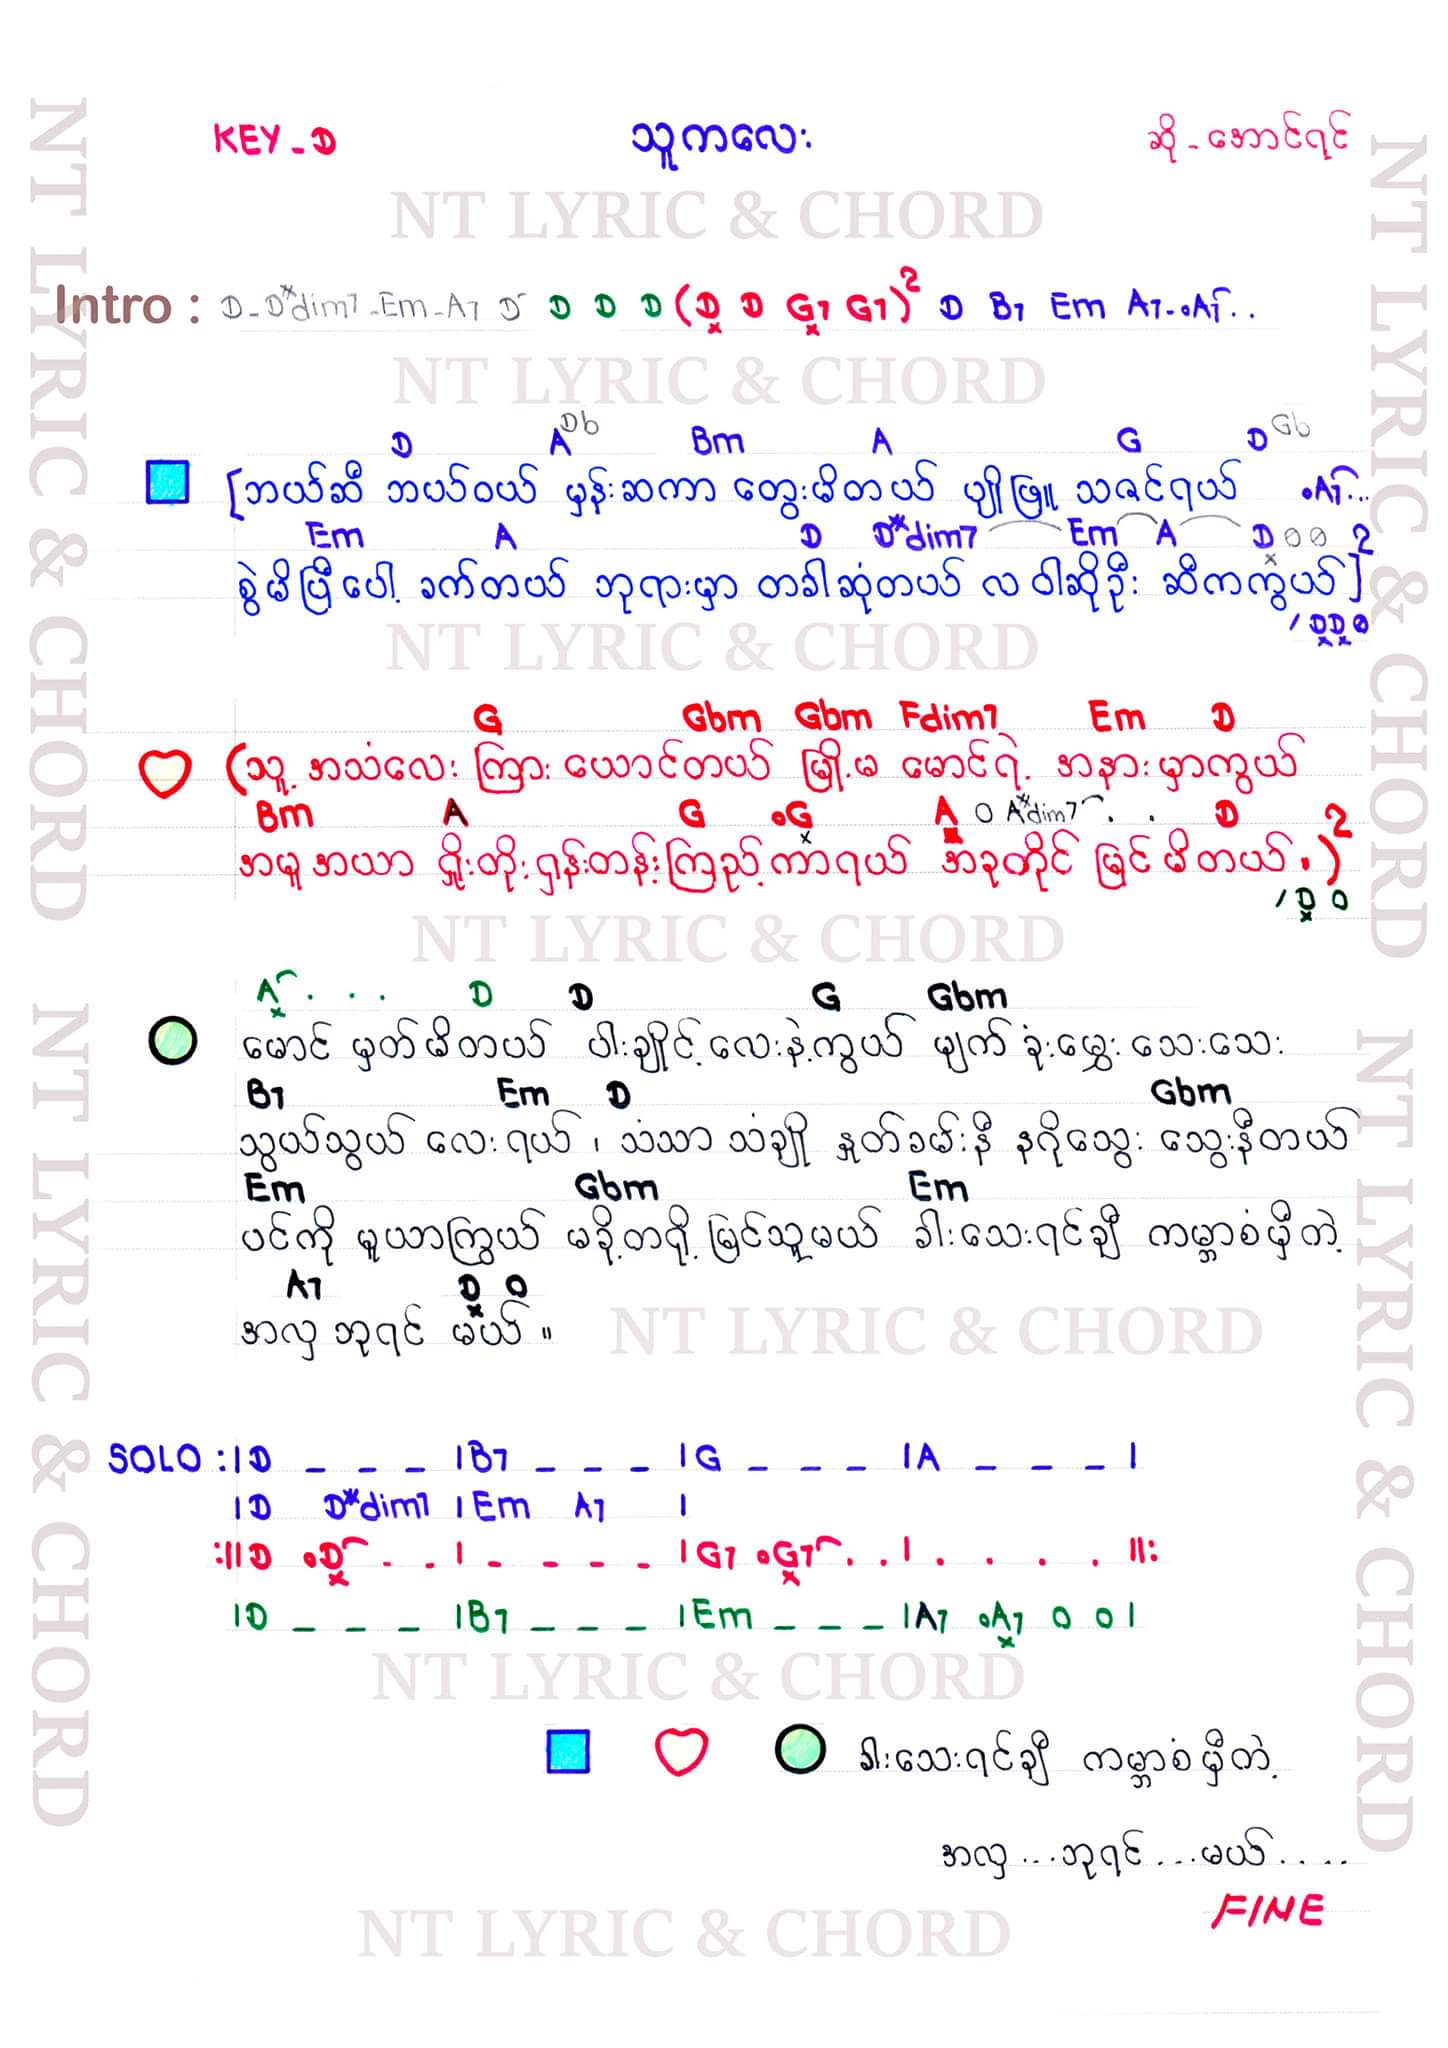 KEY - D သူကလေး ဆို - အောင်ရင်
NT LYRIC & CHORD
Intro : D - D*dim7 - Em - A7 D D D D (D D G7 G7)2 D B7 Em A7 - A7 . .
NT LYRIC & CHORD
D A Db Bm A G D Gb
[ဘယ်ဆီ ဘယ်ဝယ် မှန်းဆကာ တွေးမိတယ် ပျိုဖြူ သဇင်ရယ် A7 ...
Em A D D*dim7 Em A D 0 0 2
စွဲမိပြီပေါ့ ခက်တယ် ဘုရားမှာ တခါဆုံတယ် လဝါဆိုဦး ဆီကကွယ်]
/ D D 0
NT LYRIC & CHORD
G Gbm Gbm Fdim7 Em D
(သူ့ အသံလေး ကြားယောင်တယ် မြို့မ မောင်ရဲ့ အနားမှာကွယ်
Bm A G G A 0 A*dim7 . . D 2
အမူအယာ ရှိုးတိုးရှန်းတန့်ကြည့်ကာရယ် အခုတိုင် မြင်မိတယ် .)
/ D 0
NT LYRIC & CHORD
A . . . D D G Gbm
မောင် မှတ်မိတယ် ပါးချိုင့်လေးနဲ့ကွယ် မျက်ခုံးမွှေး သေးသေး
B7 Em D Gbm
သွယ်သွယ်လေးရယ် ၊ သံသာ သံချို နှုတ်ခမ်းနီ နဂိုသွေး သွေးနီတယ်
Em Gbm Em
ပင်ကို မူယာကြွယ် မခို့တရို့ မြင်သူမယ် ခါးသေးရင်ချီ ကမ္ဘာစံမှီတဲ့
A7 D 0
အလှဘုရင် မယ် ။
NT LYRIC & CHORD
SOLO : | D _ _ _ | B7 _ _ _ | G _ _ _ | A _ _ _ |
| D D*dim7 | Em A7 |
:|| D D . . | . _ _ _ | G7 G7 . . | . . . . ||:
| D _ _ _ | B7 _ _ _ | Em _ _ _ | A7 A7 0 0 |
NT LYRIC & CHORD
ခါးသေးရင်ချီ ကမ္ဘာစံမှီတဲ့
အလှ ... ဘုရင် ... မယ် .....
FINE
NT LYRIC & CHORD
NT LYRIC & CHORD
NT LYRIC & CHORD
NT LYRIC & CHORD
NT LYRIC & CHORD